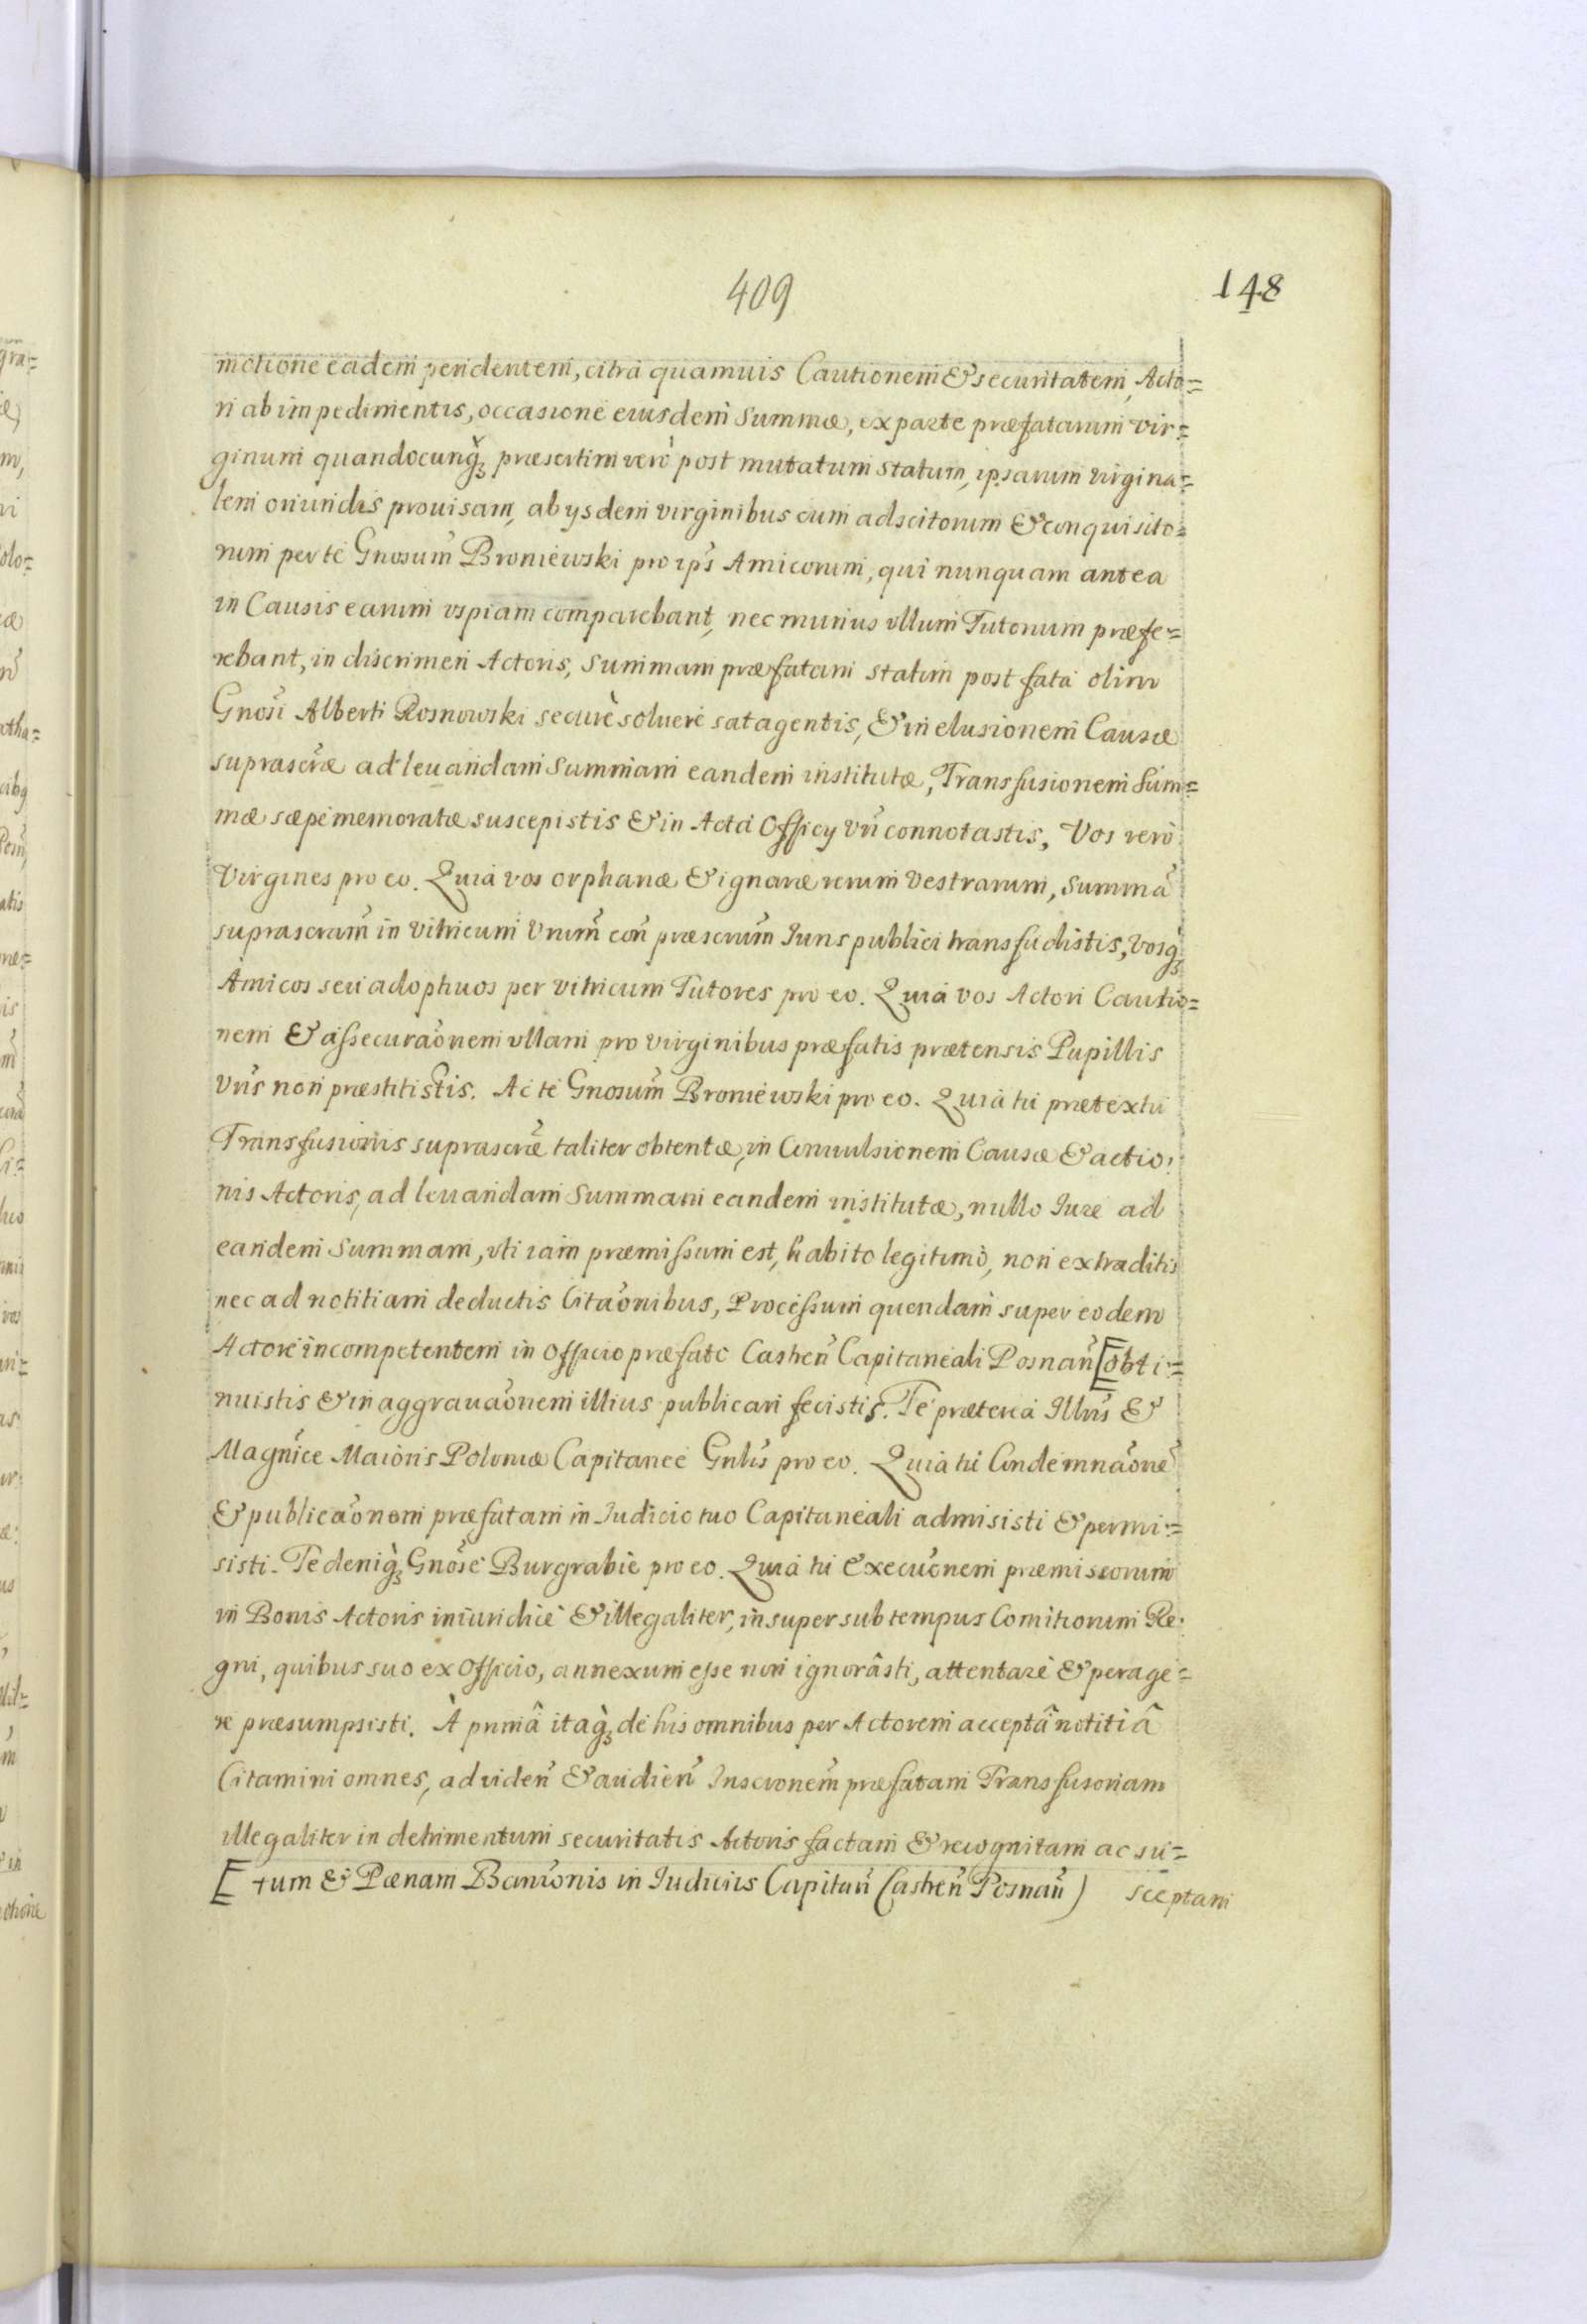 409
148
motione eadem pendentem, citra quamuis Cautionem & securitatem, Acto=
ri ab impedimentis, occasione eiusdem Summæ, ex parte præfatarum vir=
ginum quandocunq3 præsertim verò post mutatum statum, ipsarum virgina=
lem oriundis prouisam, ab ysdem virginibus cum adscitorum & conquisito=
rum per te Gnosum Broniewski pro ips Amicorum, qui nunquam antea
in Causis earum vspiam comparebant, nec munus vllum Tutorum præfe=
rebant, in discrimen Actoris, Summam præfatam statim post fata olim
Gnosi Alberti Rosnowski securè soluere satagentis, & in elusionem Causæ
suprascræ ad leuandam Summam eandem institutæ, Transfusionem Sum=
mæ sæpe memoratæ suscepistis & in Acta Officy vn connotastis, Vos verò
Virgines pro eo. Quia vos orphanæ & ignaræ rerum Vestrarum, Summā
suprascram in vitricum vrum con præscrum Iuris publici transfudistis, vosq3
Amicos seu adoptiuos per vitricum Tutores pro eo. Quia vos Actori Cautio=
nem & assecuraonem vllam pro virginibus præfatis prætensis Pupillis
vris non præstitistis. Ac te Gnosum Broniewski pro eo. Quia tu prætextu
Transfusionis suprascræ taliter obtentæ, in Conuulsionem Causæ & actio=
nis Actoris, ad leuandam Summam eandem institutæ, nullo Iure ad
eandem Summam, vti iam præmissum est, habito legitimo, non extraditis
nec ad notitiam deductis Citaonibus, Processum quendam super eodem
Actore incompetentem in Officio præfato Castren Capitaneali Posnan [obti=
nuistis & in aggrauaonem illius publicari fecistis. Te præterea Illris &
Magnice Maioris Poloniæ Capitanee Gnlis pro eo. Quia tu Condemnaone
& publicaonem præfatam in Iudicio tuo Capitaneali admisisti & permi=
sisti. Te deniq3 Gnose Burgrabie pro eo. Quia tu Execuonem præmissorum
in Bonis Actoris iniuridicè & illegaliter, insuper sub tempus Comitiorum Re=
gni, quibus suo ex Officio, annexum esse non ignorâsti, attentare & perage=
re præsumpsisti. À primâ itaq3 de his omnibus per Actorem acceptâ notitiâ
Citamini omnes, ad viden & audien Inscronem præfatam Transfusoriam
illegaliter in detrimentum securitatis Actoris factam & recognitam ac su=
[tum & Pænam Banionis in Iudiciis Capitan Castren Posnan)
sceptam